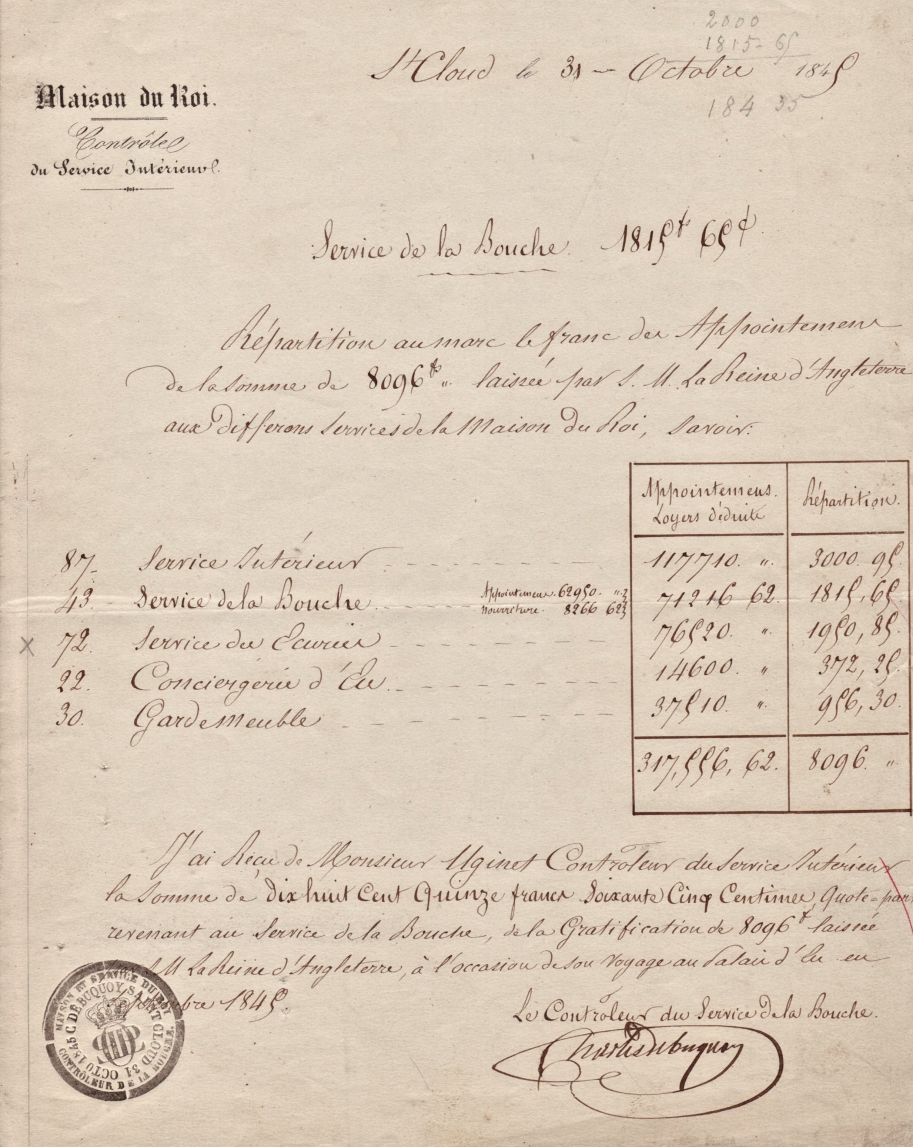 2000
1815-65
184 35
St Cloud le 31 - Octobre 1845
Maison du Roi.
Contrôle
du Service Intérieur
Service de la Bouche. 1815f 65c
Répartition au marc le franc des Appointemens
de la somme de 8096f " laissée par S. M. La Reine d'Angleterre
aux differens Services de la Maison du Roi, Savoir:
Appointemens. Loyers déduits
Répartition.
87. Service Intérieur 117710. " 3000 95
43. Service de la Bouche Appointemens. 62950. " Nourriture. 8266 62 71216 62. 1815, 65
X 72. Service des Ecuries 76520. " 1950, 85
22. Conciergerie d'Eu 14600. " 372, 25
30. Garde meuble 37510. " 956, 30.
317,556, 62. 8096. "
J'ai Reçu de Monsieur Uginet Controleur du Service Intérieur
la Somme de Dix huit Cent Quinze francs Soixante Cinq Centimes, Quote=part
revenant au Service de la Bouche, de la Gratification de 8096f laissée
S. M. La Reine d'Angleterre, à l'occasion de son Voyage au Palais d'Eu en
1845.
Le Controleur du Service De la Bouche.
Charles debucquoy
MAISON ET SERVICE DU ROI
C. DEBUCQUOY SAINT CLOUD 31 OCTO 1845
CONTRÔLEUR DE LA BOUCHE